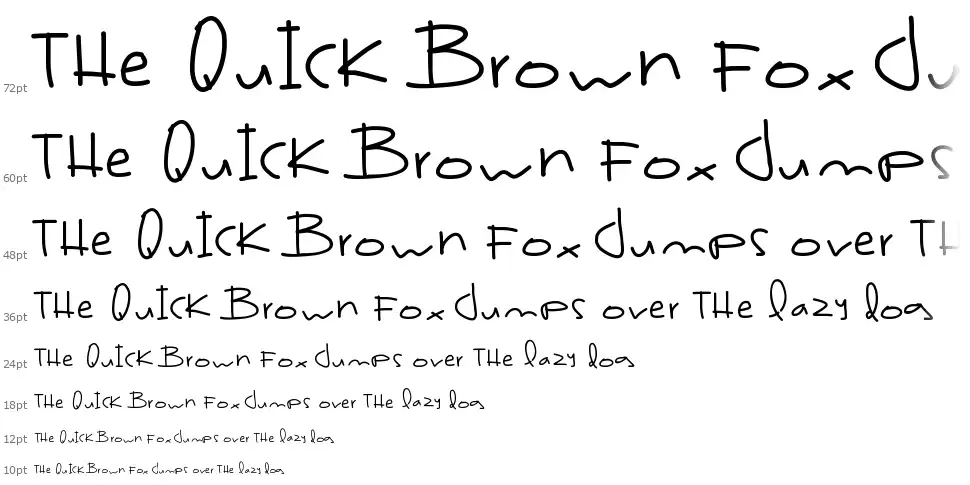 72pt THe QuIcK Brown Fox Ju
60pt THe QuIcK Brown Fox Jumps
48pt THe QuIcK Brown Fox Jumps over TH
36pt THe QuIcK Brown Fox Jumps over THe lazy dog
24pt THe QuIcK Brown Fox Jumps over THe lazy dog
18pt THe QuIcK Brown Fox Jumps over THe lazy dog
12pt THe QuIcK Brown Fox Jumps over THe lazy dog
10pt THe QuIcK Brown Fox Jumps over THe lazy dog